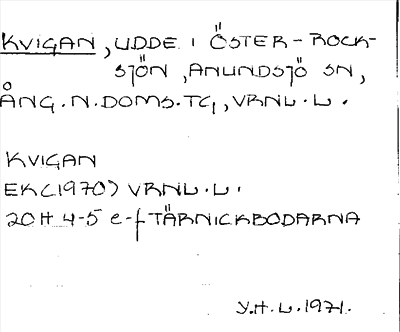 KVIGAN, UDDE I ÖSTER-ROCK-
SJÖN, ANUNDSJÖ SN,
ÅNG.N.DOMS.TG, VRNL.L.
KVIGAN
EK(1970) VRNL.L.
20H 4-5 e-f TÄRNICKBODARNA
Y.H.L.1971.